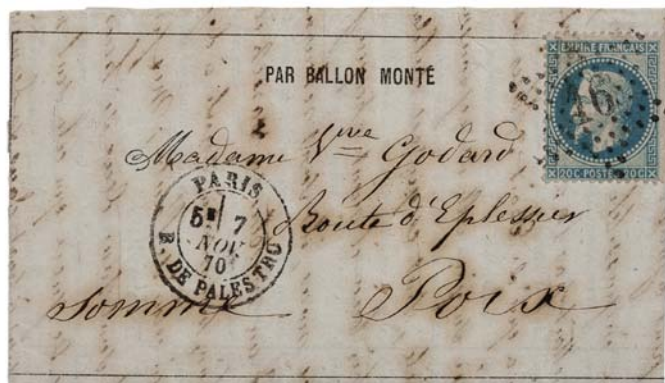 PAR BALLON MONTÉ
EMPIRE FRANÇAIS
20C POSTES 20C
16
Madame Vve Godard
Route d'Eplessier
Somme Poix
PARIS
5E 7
NOV
70
R. DE PALESTRO